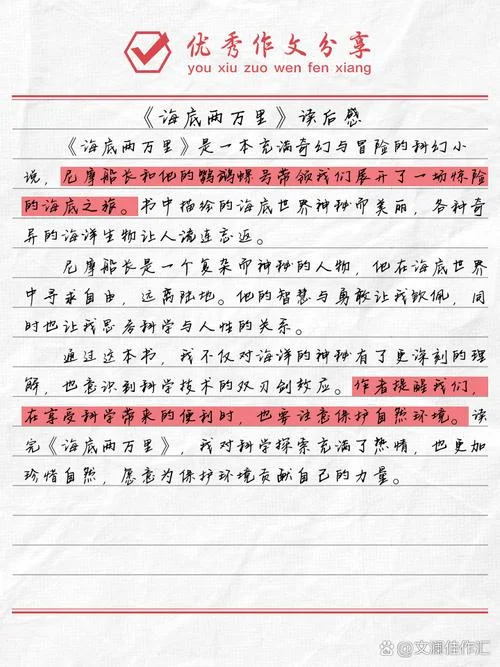 优秀作文分享
you xiu zuo wen fen xiang
《海底两万里》读后感
《海底两万里》是一本充满奇幻与冒险的科幻小
说，尼摩船长和他的鹦鹉螺号带领我们展开了一场惊险
的海底之旅。书中描绘的海底世界神秘而美丽，各种奇
异的海洋生物让人流连忘返。
尼摩船长是一个复杂而神秘的人物，他在海底世界
中寻求自由，远离陆地。他的智慧与勇敢让我钦佩，同
时也让我思考科学与人性的关系。
通过这本书，我不仅对海洋的神秘有了更深刻的理
解，也意识到科学技术的双刃剑效应。作者提醒我们，
在享受科学带来的便利时，也要注意保护自然环境。读
完《海底两万里》，我对科学探索充满了热情，也更加
珍惜自然，愿意为保护环境贡献自己的力量。
文澜佳作汇